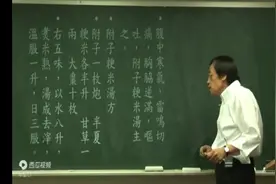 腹中寒氣，雷鳴切
痛，胸脇逆滿，嘔
吐，附子粳米湯主
之。
附子粳米湯方
附子一枚炮 半夏
粳米各半升 甘草一
兩 大棗十枚
右五味，以水八升，
煮米熟，湯成去滓，
溫服一升，日三服。
西瓜视频